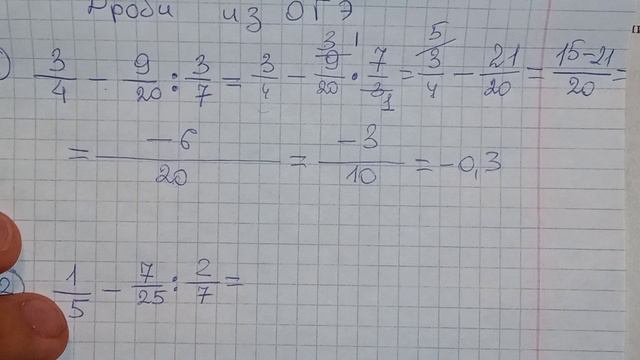 Дроби из ОГЭ
) 3/4 - 9/20 : 3/7 = 3/4 - 9̸³/20 · 7/3̸₁ = 3⁵/4 - 21/20 = 15-21/20 =
= -6/20 = -3/10 = -0,3
2 1/5 - 7/25 : 2/7 =